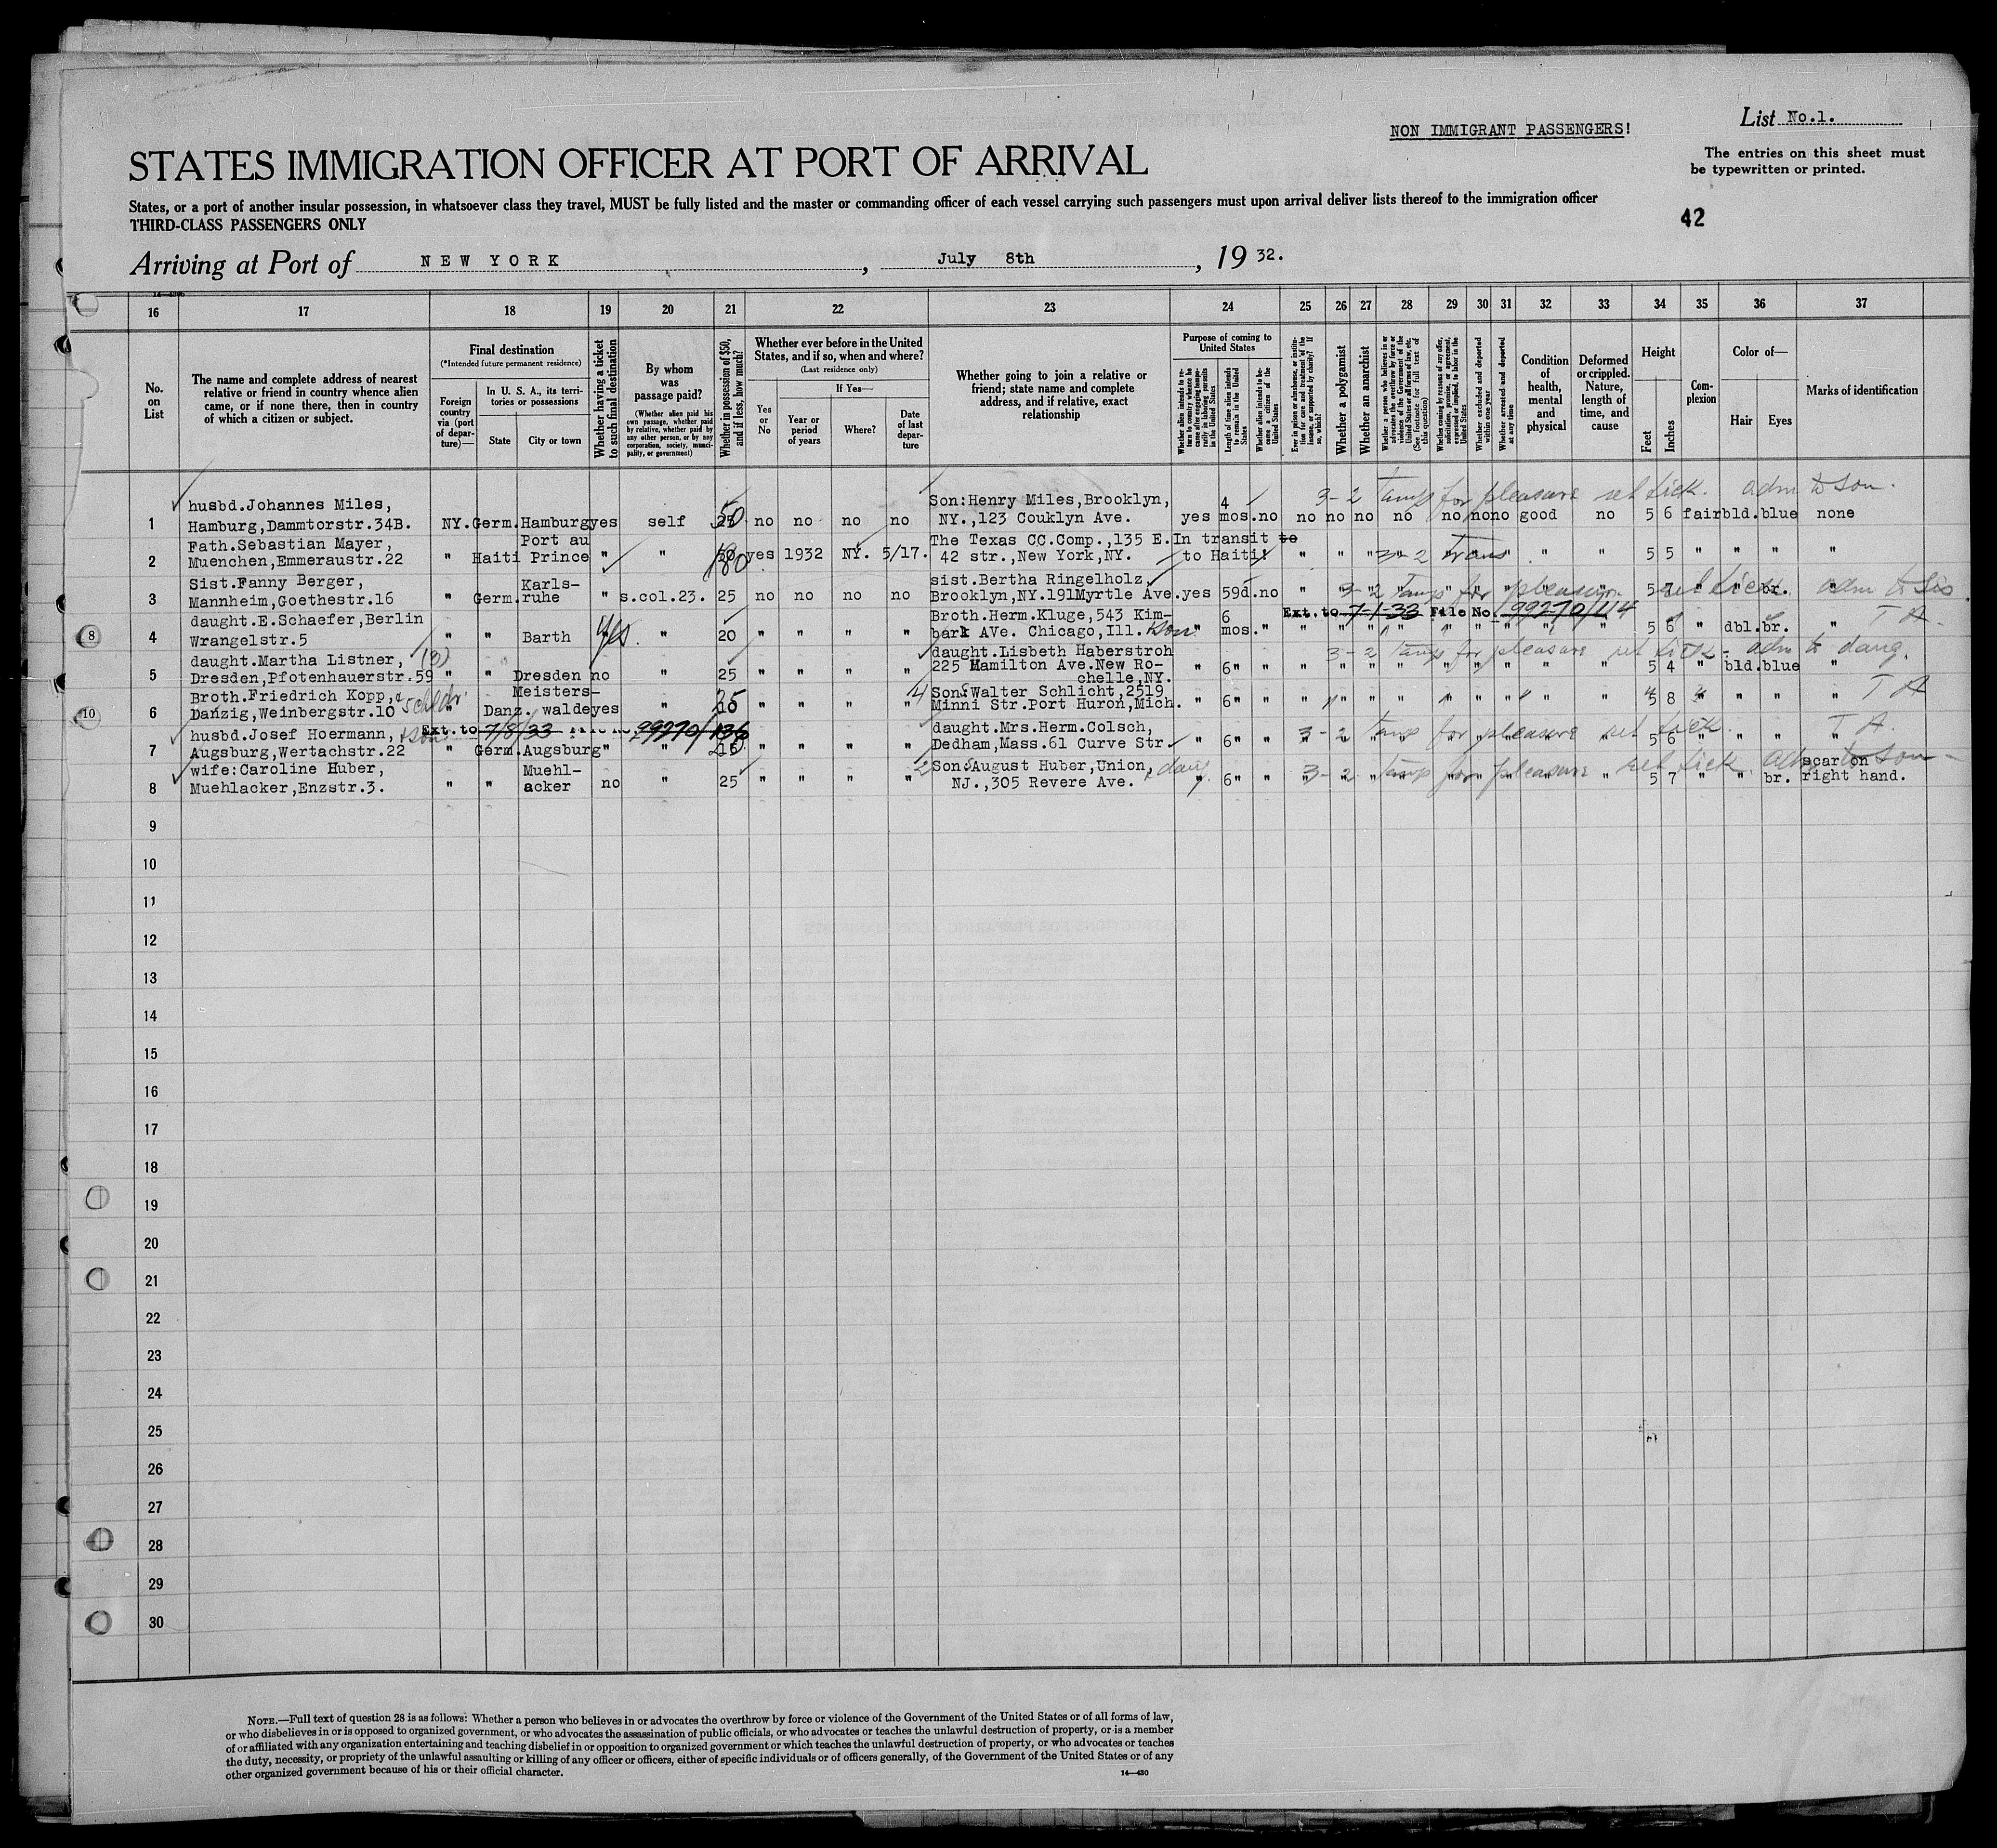 NON IMMIGRANT PASSENGERS!
List No.1.
STATES IMMIGRATION OFFICER AT PORT OF ARRIVAL
The entries on this sheet must
be typewritten or printed.
States, or a port of another insular possession, in whatsoever class they travel, MUST be fully listed and the master or commanding officer of each vessel carrying such passengers must upon arrival deliver lists thereof to the immigration officer
THIRD-CLASS PASSENGERS ONLY
42
Arriving at Port of NEW YORK, July 8th, 19 32.
16 17 18 19 20 21 22 23 24 25 26 27 28 29 30 31 32 33 34 35 36 37
No.
on
List
The name and complete address of nearest
relative or friend in country whence alien
came, or if none there, then in country
of which a citizen or subject.
Final destination
(*Intended future permanent residence)
Foreign
country
via (port
of depar-
ture)—
In U. S. A., its terri-
tories or possessions
State
City or town
Whether having a ticket
to such final destination
By whom
was
passage paid?
(Whether alien paid his
own passage, whether paid
by relative, whether paid by
any other person, or by any
corporation, society, munici-
pality, or government)
Whether in possession of $50,
and if less, how much?
Whether ever before in the United
States, and if so, when and where?
(Last residence only)
Yes
or
No
If Yes—
Year or
period
of years
Where?
Date
of last
depar-
ture
Whether going to join a relative or
friend; state name and complete
address, and if relative, exact
relationship
Purpose of coming to
United States
Whether alien intends to re-
turn to country whence he
came after engaging tempo-
rarily in laboring pursuits
in the United States
Length of time alien intends
to remain in the United
States
Whether alien intends to be-
come a citizen of the
United States
Ever in prison or almshouse, or institu-
tion for care and treatment of the
insane, or supported by charity? If
so, which?
Whether a polygamist
Whether an anarchist
Whether a person who believes in or
advocates the overthrow by force or
violence of the Government of the
United States or all forms of law, etc.
(See footnote for full text of
this question)
Whether coming by reasons of any offer,
solicitation, promise, or agreement,
expressed or implied, to labor in the
United States
Whether excluded and deported
within one year
Whether arrested and deported
at any time
Condition
of
health,
mental
and
physical
Deformed
or crippled.
Nature,
length of
time, and
cause
Height
Feet
Inches
Com-
plexion
Color of—
Hair
Eyes
Marks of identification
husbd.Johannes Miles, Son:Henry Miles,Brooklyn, 4 3-2 temp for pleasure ret tick. adm to son.
1 Hamburg,Dammtorstr.34B. NY. Germ. Hamburg yes self 50 no no no no NY.,123 Couklyn Ave. yes mos. no no no no no no no no good no 5 6 fair bld. blue none
Fath.Sebastian Mayer, Port au The Texas CC.Comp.,135 E. In transit to
2 Muenchen,Emmeraustr.22 " Haiti Prince " " 180 yes 1932 NY. 5/17. 42 str.,New York,NY. to Haiti! " " " 3-2 trans " " " " 5 5 " " " "
Sist.Fanny Berger, Karls- sist.Bertha Ringelholz,
3 Mannheim,Goethestr.16 " Germ. ruhe " s.col.23. 25 no no no no Brooklyn,NY.191Myrtle Ave. yes 59d. no " 3-2 temp for pleasure 5 7 ret tick br. adm to sis.
daught.E.Schaefer,Berlin Broth.Herm.Kluge,543 Kim- 6 Ext. to 7-1-33 File No. 99270/114
8 4 Wrangelstr.5 " " Barth yes " 20 " " " " bark AVe. Chicago,Ill. son " mos. " " " " " " " " " " 5 6 " dbl. br. " T A.
daught.Martha Listner, daught.Lisbeth Haberstroh 3-2 temp for pleasure ret tick - adm to daug.
5 Dresden,Pfotenhauerstr.59 " " Dresden no " 25 " " " " 225 Hamilton Ave.New Ro- " 6" " " " " " " " " " " 5 4 " bld. blue "
chelle,NY.
Broth.Friedrich Kopp, Meisters- 25 4 Son:Walter Schlicht,2519
10 6 Danzig,Weinbergstr.10 & schldr. " Danz. walde yes " " " " " Minni Str.Port Huron,Mich. " 6" " " " " " " " " " " 5 8 " " " " T A
husbd.Josef Hoermann, Ext. to 7/8/33 File No. 99270/136 daught.Mrs.Herm.Colsch, 3-2 temp for pleasure ret tick. T A.
7 Augsburg,Wertachstr.22 " Germ. Augsburg " " " " " " Dedham,Mass.61 Curve Str. " 6" " " " " " " " " " " 5 6 " " " "
wife:Caroline Huber, Muehl- 2 Son:August Huber,Union, & daug 3-2 temp for pleasure ret tick. adm to son scar on
8 Muehlacker,Enzstr.3. " " acker no " 25 " " " " NJ.,305 Revere Ave. " 6" " " " " " " " " " " 5 7 " " br. right hand.
9
10
11
12
13
14
15
16
17
18
19
20
21
22
23
24
25
26
27
28
29
30
NOTE.—Full text of question 28 is as follows: Whether a person who believes in or advocates the overthrow by force or violence of the Government of the United States or of all forms of law,
or who disbelieves in or is opposed to organized government, or who advocates the assassination of public officials, or who advocates or teaches the unlawful destruction of property, or is a member
of or affiliated with any organization entertaining and teaching disbelief in or opposition to organized government or which teaches the unlawful destruction of property, or who advocates or teaches
the duty, necessity, or propriety of the unlawful assaulting or killing of any officer or officers, either of specific individuals or of officers generally, of the Government of the United States or of any
other organized government because of his or their official character.
14—430